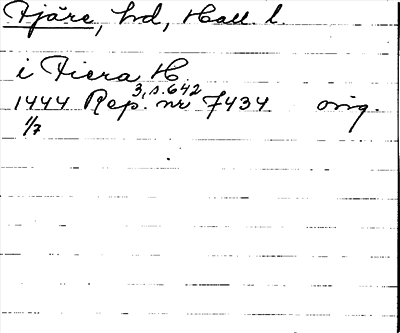 Fjäre, hd, Hall. l.
i Fiera H.
3, s. 642
1444 Rep. nr 7434 orig.
1/7